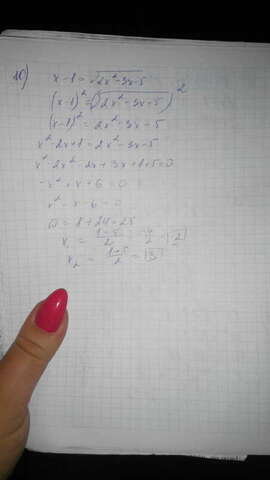 10) x-1=√2x²-3x-5
(x-1)²=(√2x²-3x-5)²
(x-1)²=2x²-3x-5
x²-2x+1=2x²-3x-5
x²-2x²-2x+3x+1+5=0
-x²+x+6=0
x²-x-6=0
D=1+24=25
x₁=(1-5)/2=-4/2=-2
x₂=(1+5)/2=3